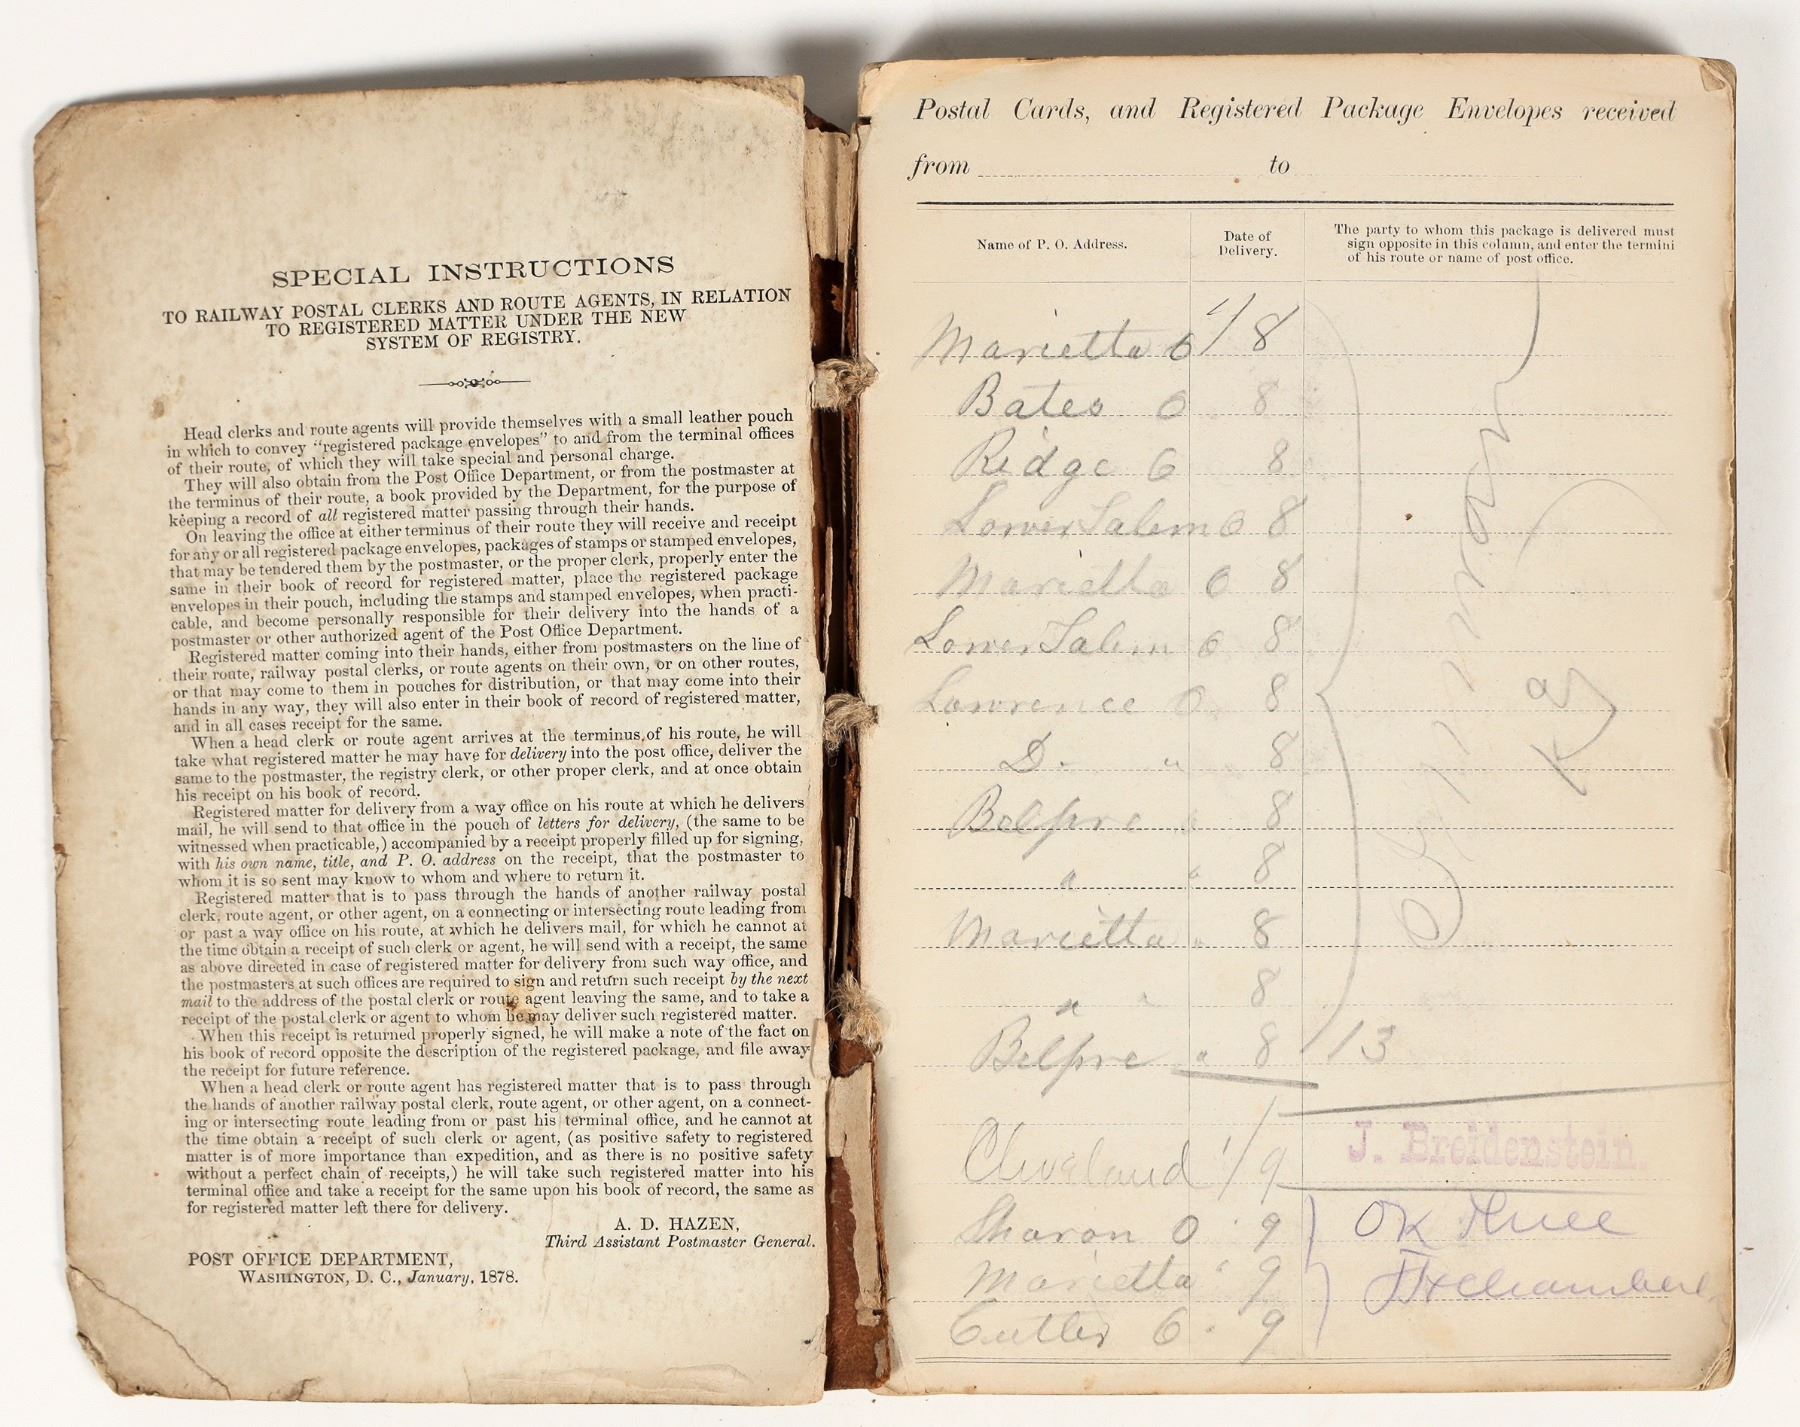 SPECIAL INSTRUCTIONS
TO RAILWAY POSTAL CLERKS AND ROUTE AGENTS, IN RELATION
TO REGISTERED MATTER UNDER THE NEW
SYSTEM OF REGISTRY.
Head clerks and route agents will provide themselves with a small leather pouch
in which to convey "registered package envelopes" to and from the terminal offices
of their route, of which they will take special and personal charge.
They will also obtain from the Post Office Department, or from the postmaster at
the terminus of their route, a book provided by the Department, for the purpose of
keeping a record of all registered matter passing through their hands.
On leaving the office at either terminus of their route they will receive and receipt
for any or all registered package envelopes, packages of stamps or stamped envelopes,
that may be tendered them by the postmaster, or the proper clerk, properly enter the
same in their book of record for registered matter, place the registered package
envelopes in their pouch, including the stamps and stamped envelopes, when practi-
cable, and become personally responsible for their delivery into the hands of a
postmaster or other authorized agent of the Post Office Department.
Registered matter coming into their hands, either from postmasters on the line of
their route, railway postal clerks, or route agents on their own, or on other routes,
or that may come to them in pouches for distribution, or that may come into their
hands in any way, they will also enter in their book of record of registered matter,
and in all cases receipt for the same.
When a head clerk or route agent arrives at the terminus of his route, he will
take what registered matter he may have for delivery into the post office, deliver the
same to the postmaster, the registry clerk, or other proper clerk, and at once obtain
his receipt on his book of record.
Registered matter for delivery from a way office on his route at which he delivers
mail, he will send to that office in the pouch of letters for delivery, (the same to be
witnessed when practicable,) accompanied by a receipt properly filled up for signing,
with his own name, title, and P. O. address on the receipt, that the postmaster to
whom it is so sent may know to whom and where to return it.
Registered matter that is to pass through the hands of another railway postal
clerk, route agent, or other agent, on a connecting or intersecting route leading from
or past a way office on his route, at which he delivers mail, for which he cannot at
the time obtain a receipt of such clerk or agent, he will send with a receipt, the same
as above directed in case of registered matter for delivery from such way office, and
the postmasters at such offices are required to sign and return such receipt by the next
mail to the address of the postal clerk or route agent leaving the same, and to take a
receipt of the postal clerk or agent to whom he may deliver such registered matter.
When this receipt is returned properly signed, he will make a note of the fact on
his book of record opposite the description of the registered package, and file away
the receipt for future reference.
When a head clerk or route agent has registered matter that is to pass through
the hands of another railway postal clerk, route agent, or other agent, on a connect-
ing or intersecting route leading from or past his terminal office, and he cannot at
the time obtain a receipt of such clerk or agent, (as positive safety to registered
matter is of more importance than expedition, and as there is no positive safety
without a perfect chain of receipts,) he will take such registered matter into his
terminal office and take a receipt for the same upon his book of record, the same as
for registered matter left there for delivery.
A. D. HAZEN,
Third Assistant Postmaster General.
POST OFFICE DEPARTMENT,
WASHINGTON, D. C., January, 1878.
Postal Cards, and Registered Package Envelopes received
from to
Name of P. O. Address.
Date of
Delivery.
The party to whom this package is delivered must
sign opposite in this column, and enter the termini
of his route or name of post office.
Marietta O 1/8
Bates O 8
Ridge O 8
Lower Salem O 8
Marietta O 8
Lower Salem O 8
Lawrence O 8
D. " 8
Belpre " 8
" " 8
Marietta " 8
" " 8
Belpre " 8 13
Cleveland 1/9 J. Breidenstein.
Sharon O 9 OK
Marietta " 9
Cutler O 9